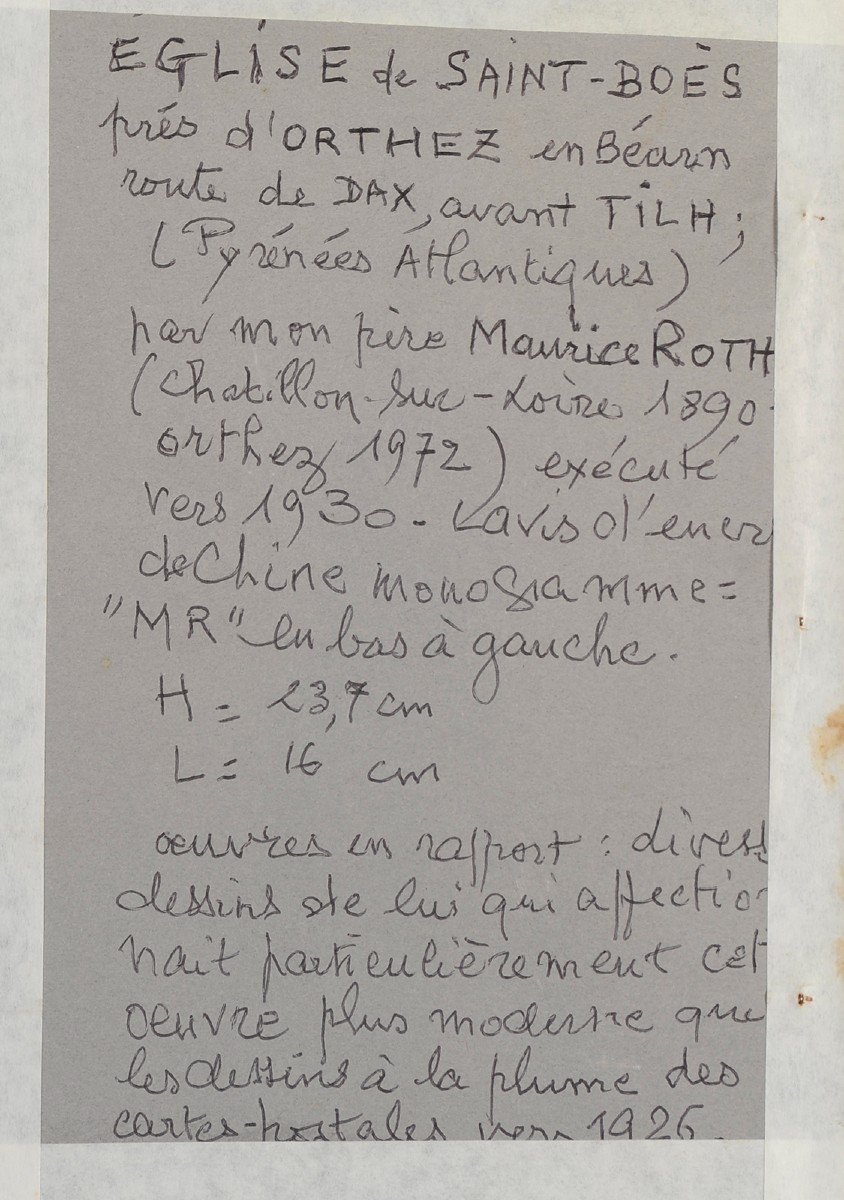 ÉGLISE de SAINT-BOÈS
prés d'ORTHEZ en Béarn
route de DAX, avant TILH;
(Pyrénées Atlantiques)
par mon père Maurice ROTH
(Chatillon-sur-Loire 1890
orthez 1972) exécuté
vers 1930 - Lavis d'encr
de Chine monogramme =
"MR" en bas à gauche.
H = 23,7 cm
L = 16 cm
œuvres en rapport : divers
dessins de lui qui affectio
nait particulièrement cet
oeuvre plus moderne que
les dessins à la plume des
cartes-postales vers 1926.